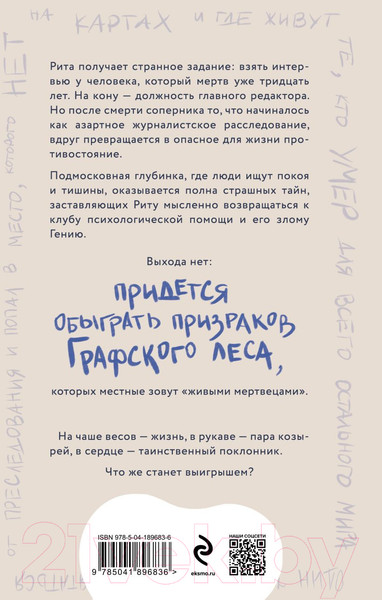 НА КАРТАХ И ГДЕ ЖИВУТ
ТЕ, КТО УМЕР ДЛЯ ВСЕГО ОСТАЛЬНОГО МИРА
ОТ ПРЕСЛЕДОВАНИЯ И ПОПАЛ В МЕСТО, КОТОРОГО НЕТ
Рита получает странное задание: взять интер-
вью у человека, который мертв уже тридцать
лет. На кону — должность главного редактора.
Но после смерти соперника то, что начиналось
как азартное журналистское расследование,
вдруг превращается в опасное для жизни про-
тивостояние.
Подмосковная глубинка, где люди ищут покоя
и тишины, оказывается полна страшных тайн,
заставляющих Риту мысленно возвращаться к
клубу психологической помощи и его злому
Гению.
Выхода нет:
ПРИДЕТСЯ
ОБЫГРАТЬ ПРИЗРАКОВ
ГРАФСКОГО ЛЕСА,
которых местные зовут «живыми мертвецами».
На чаше весов — жизнь, в рукаве — пара козы-
рей, в сердце — таинственный поклонник.
Что же станет выигрышем?
ISBN 978-5-04-189683-6
9 785041 896836 >
эксмо
eksmo.ru
НАШИ СОЦСЕТИ
21vek.by